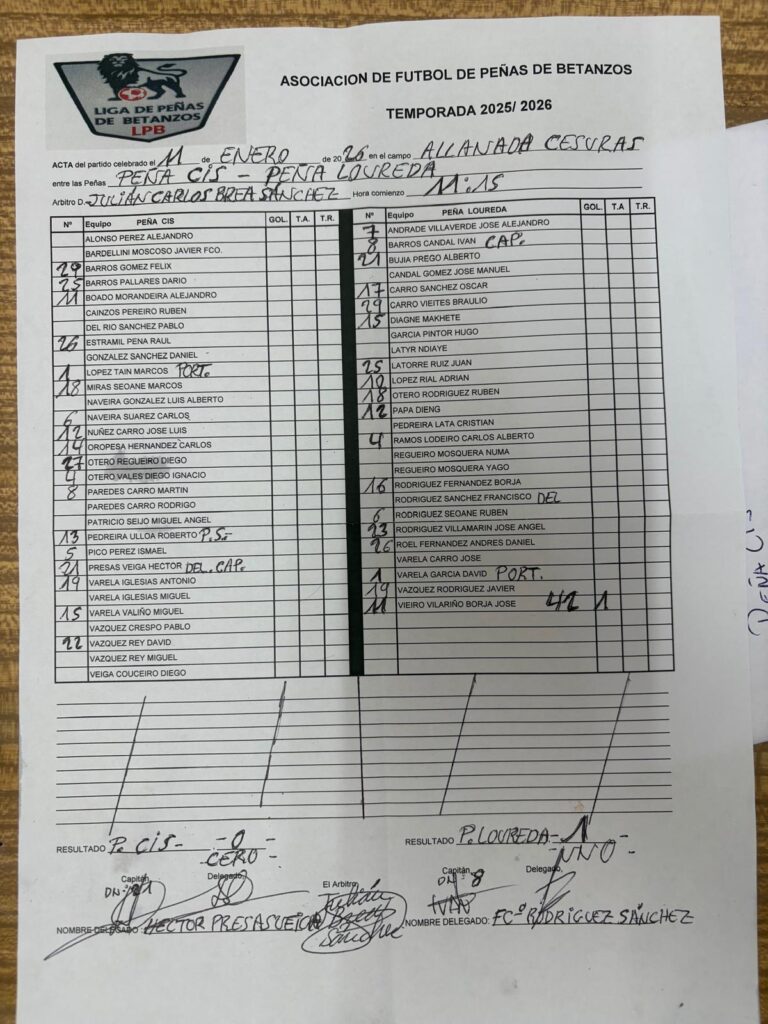 LIGA DE PEÑAS
DE BETANZOS
LPB
ASOCIACION DE FUTBOL DE PEÑAS DE BETANZOS
TEMPORADA 2025/ 2026
ACTA del partido celebrado el 11 de ENERO de 2026 en el campo ALLANADA CESURAS
entre las Peñas PEÑA CIS - PEÑA LOUREDA
Arbitro D. JULIÁN CARLOS BREA SÁNCHEZ Hora comienzo 11:15
Nº Equipo PEÑA CIS GOL. T.A. T.R.
ALONSO PEREZ ALEJANDRO
BARDELLINI MOSCOSO JAVIER FCO.
29 BARROS GOMEZ FELIX
25 BARROS PALLARES DARIO
11 BOADO MORANDEIRA ALEJANDRO
CAINZOS PEREIRO RUBEN
DEL RIO SANCHEZ PABLO
26 ESTRAMIL PENA RAUL
GONZALEZ SANCHEZ DANIEL
1 LOPEZ TAIN MARCOS PORT.
18 MIRAS SEOANE MARCOS
NAVEIRA GONZALEZ LUIS ALBERTO
6 NAVEIRA SUAREZ CARLOS
12 NUÑEZ CARRO JOSE LUIS
14 OROPESA HERNANDEZ CARLOS
27 OTERO REGUEIRO DIEGO
4 OTERO VALES DIEGO IGNACIO
8 PAREDES CARRO MARTIN
PAREDES CARRO RODRIGO
PATRICIO SEIJO MIGUEL ANGEL
13 PEDREIRA ULLOA ROBERTO P.S.-
5 PICO PEREZ ISMAEL
21 PRESAS VEIGA HECTOR DEL. CAP.
19 VARELA IGLESIAS ANTONIO
VARELA IGLESIAS MIGUEL
15 VARELA VALIÑO MIGUEL
VAZQUEZ CRESPO PABLO
22 VAZQUEZ REY DAVID
VAZQUEZ REY MIGUEL
VEIGA COUCEIRO DIEGO
Nº Equipo PEÑA LOUREDA GOL. T.A T.R.
7 ANDRADE VILLAVERDE JOSE ALEJANDRO
8 BARROS CANDAL IVAN CAP.
21 BUJIA PREGO ALBERTO
CANDAL GOMEZ JOSE MANUEL
17 CARRO SANCHEZ OSCAR
29 CARRO VIEITES BRAULIO
15 DIAGNE MAKHETE
GARCIA PINTOR HUGO
LATYR NDIAYE
25 LATORRE RUIZ JUAN
10 LOPEZ RIAL ADRIAN
18 OTERO RODRIGUEZ RUBEN
12 PAPA DIENG
PEDREIRA LATA CRISTIAN
4 RAMOS LODEIRO CARLOS ALBERTO
REGUEIRO MOSQUERA NUMA
REGUEIRO MOSQUERA YAGO
16 RODRIGUEZ FERNANDEZ BORJA
RODRIGUEZ SANCHEZ FRANCISCO DEL
6 RODRIGUEZ SEOANE RUBEN
23 RODRIGUEZ VILLAMARIN JOSE ANGEL
26 ROEL FERNANDEZ ANDRES DANIEL
VARELA CARRO JOSE
1 VARELA GARCIA DAVID PORT.
19 VAZQUEZ RODRIGUEZ JAVIER
11 VIEIRO VILARIÑO BORJA JOSE 42 1
RESULTADO P. CIS- -0-
CERO-
RESULTADO P. LOUREDA-1-
UNO-
Capitán Delegado El Arbitro Capitán Delegado
Julián
Brea
Sánchez
NOMBRE DELEGADO: HECTOR PRESAS VEIGA
NOMBRE DELEGADO: FCº RODRIGUEZ SÁNCHEZ